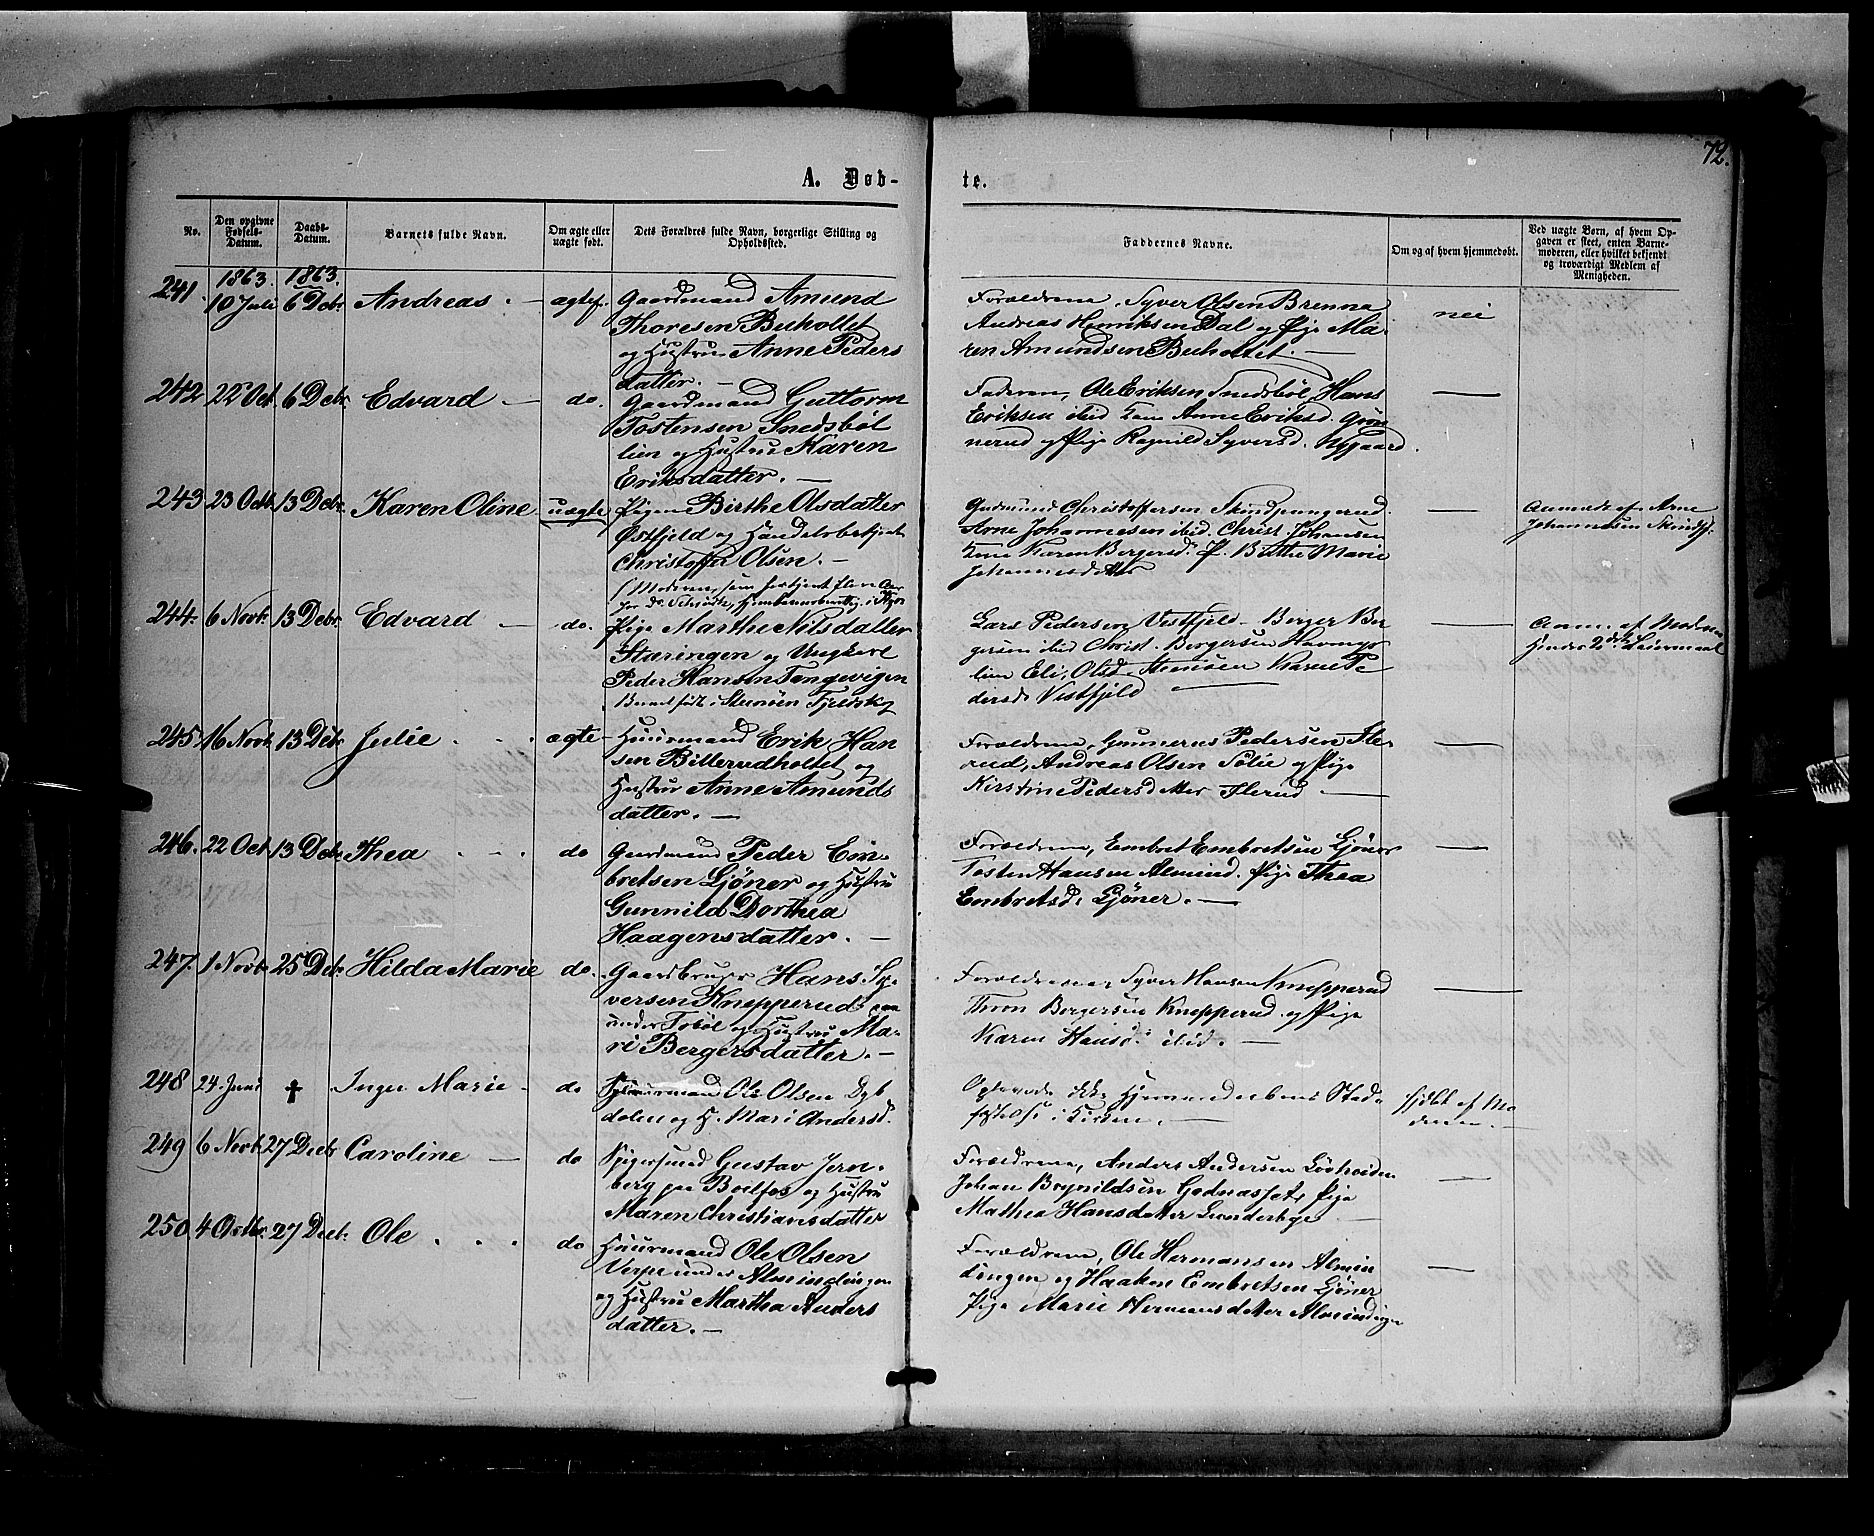 72.
A. Døb-
te.
No.
Den opgivne Fødsels-Datum.
Daabs-Datum.
Barnets fulde Navn.
Om ægte eller uægte født.
Dets Forældres fulde Navn, borgerlige Stilling og Opholdssted.
Faddernes Navne.
Om og af hvem hjemmedøbt.
Ved uægte Børn, af hvem Opgaven er skeet, enten Barnemoderen, eller hvilket bekjendt og troværdigt Medlem af Menigheden.
1863. 1863.
241. 10 Juli 6 Debr. Andreas. — ægtef.
Gaardmand Amund
Thoresen Buholtet
og Hustru Anne Peders
datter. —
Forældrene, Syver Olsen Brenna
Andreas Henriksen Dal og Pige Ma-
ren Amundsen Buholtet. —
nei
242 22 Oct. 6 Debr. Edvard — do.
Gaardmand Guttorm
Tostensen Snedsbøl
lien og Hustru Karen
Eriksdatter. —
Faderen, Ole Eriksen Snedsbøl, Hans
Eriksen ibid Kone Anne Eriksd. Grøn
nerud og Pige Ragnild Syversd. Nygaard.
—
243 23 Octb. 13 Debr. Karen Oline uægte
Pigen Birthe Olsdatter
Østfjeld og Handelsbetjent
Christoffer Olsen. —
Gudmund Christoffersen Skindpungrud.
Arne Johannesen ibid. Christ. Johansen
Kone Karen Bergersd. P. Birthe Marie
Johannesdatter
—
Anmeldt af Arne
Johannesen Skindp.
244. 6 Novb. 13 Debr. Edvard — do.
Pige Marthe Nilsdatter
Stæringen og Ungkarl
Peder Hansen Tangevigen
Lars Pedersen Vestfjeld Berger Ber
gersen ibid Christ. Bergersen
lien Eli Olsd. Stemoen Karen Pe
dersd. Vestfjeld —
—
Anm. af Moderen
Hendes 2det Leiermaal
245. 16 Novb. 13 Debr. Julie . . . ægte
Huusmand Erik Han
sen Billerudholtet og
Hustru Anne Amunds
datter. —
Forældrene, Gunnerus Pedersen Fle-
rud, Andreas Olsen Solie og Pige
Kirstine Pedersdatter Flerud —
—
246. 22 Oct. 13 Debr. Thea . . . do
Gaardmand Peder Em-
bretsen Ljøner og Hustru
Gunnild Dorthea
Haagensdatter. —
Forældrene, Embret Embretsen Ljøner
Tosten Hansen Pige Thea
Embretsd. Ljøner. —
—
247. 1 Novb. 25 Debr. Hilda Marie do.
Gaardbruger Hans Sy-
versen Knepperud
under Tobøl og Hustru Ma-
ri Bergersdatter. —
Forældrene, Syver Hansen Knepperud
Thron Bergersen Knepperud og Pige
Karen Hansd. ibid. —
—
248 24. Juni † Inger Marie - do
Huusmand Ole Olsen Dyb
dalen og H. Mari Andersd.
fæstelse i Kirken. —
af Mo
deren. —
249 6 Novb. 27 Decbr Caroline — do
Spigersmed Gustav Jern-
berg paa Boilfos og Hustru
Maren Christiansdatter
Forældrene, Anders Andersen
Johan Brynildsen Pige
Mathea Hansdatter —
—
250. 4 Octb. 27 Decbr. Ole . . . do
Huusmand Ole Olsen
Verpe under Almindingen
og Hustru Martha Anders
datter. —
Forældrene, Ole Hermansen Almin
dingen og Haaken Embretsen Ljøner
Pige Marie Hermansdatter Almindingen
—